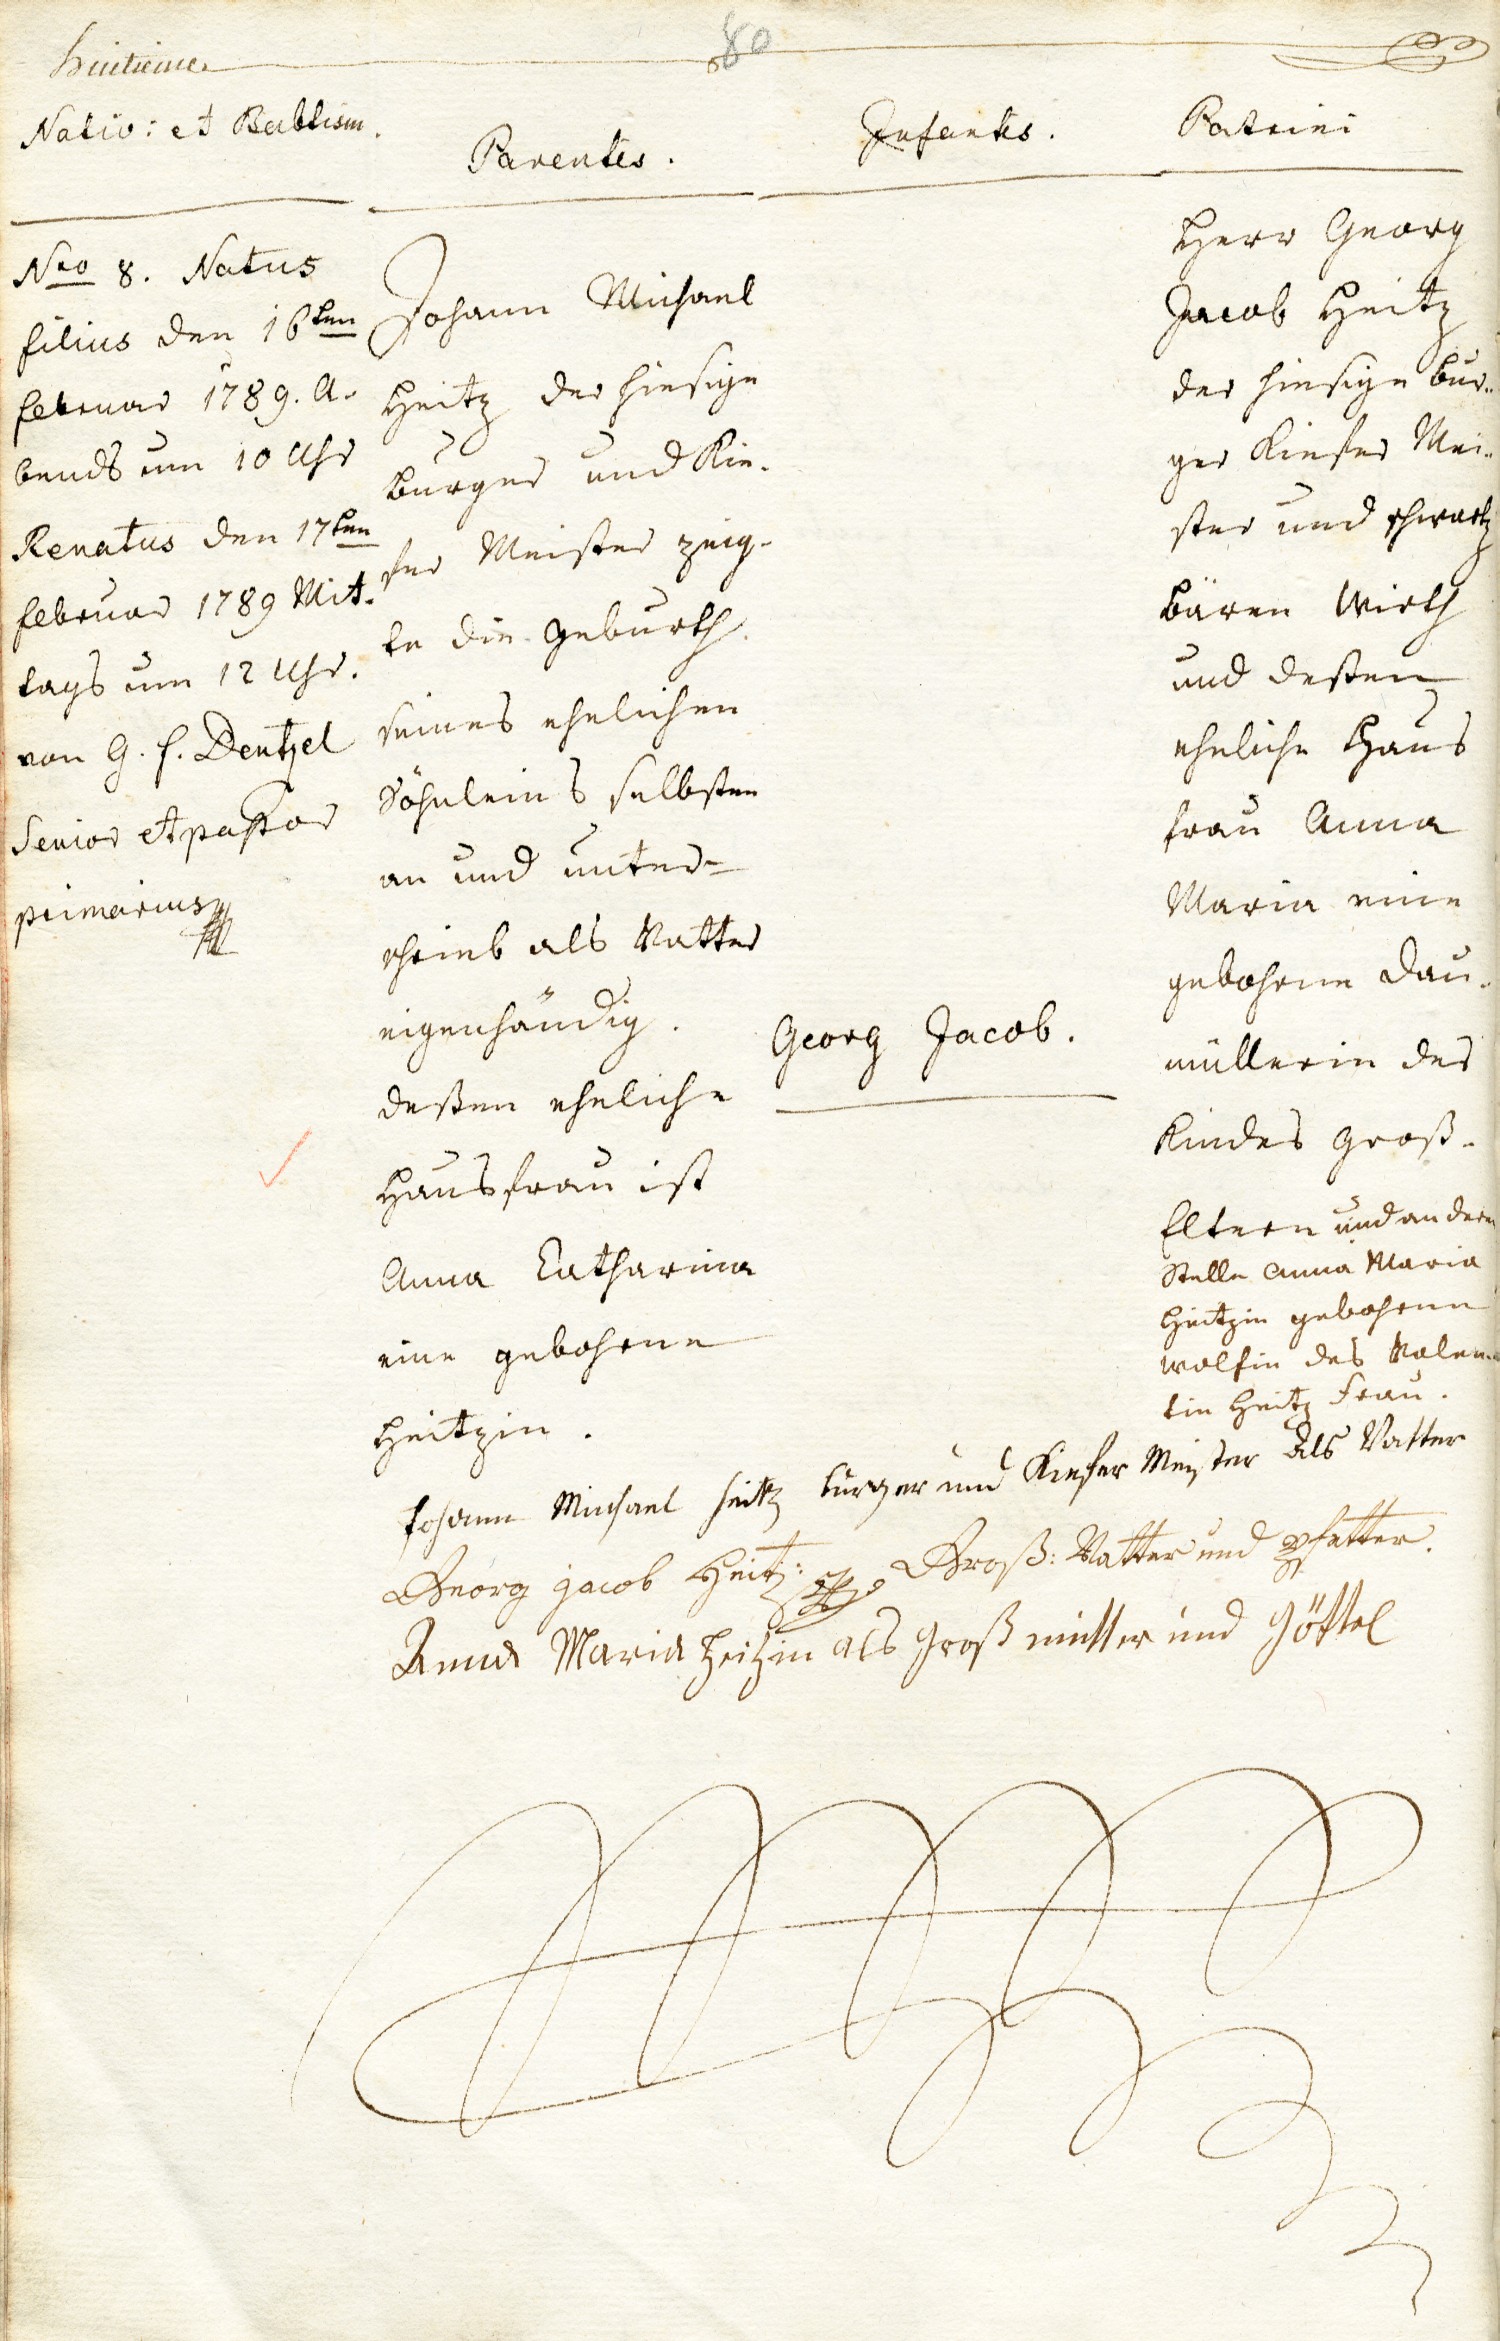 huitieme
80
Nativ: et Babtism.
Parentes.
Infantes.
Patrini
Nro 8. Natus
filius den 16ten
Februar 1789. A-
bends um 10 Uhr
Renatus den 17ten
Februar 1789 Mit-
tags um 12 Uhr.
von G. F. Dentzel
Senior et pastor
primarius
Johann Michael
Heitz der hiesige
burger und Kie-
fer Meister zeig-
te die geburth
seines ehelichen
Söhnleins selbsten
an und unter-
schrieb als Vatter
eigenhändig.
deßen eheliche
Hausfrau ist
Anna Catharina
eine gebohrne
Heitzin.
Georg Jacob.
Herr Georg
Jacob Heitz
der hiesige bur-
ger Kiefer Mei-
ster und schwartz
bären Wirth
und deßen
eheliche Haus
frau Anna
Maria eine
gebohrne Dau-
müllerin des
Kindes Groß-
Eltern und an deren
Stelle Anna Maria
Heitzin gebohrne
Wolfin des Valen-
tin Heitz Frau.
Johann Michael Heitz burger und Kiefer Meister Als Vatter
Georg jacob Heitz: Groß: Vatter und Pfetter.
Anna Maria Heitzin als Großmutter und Göttel